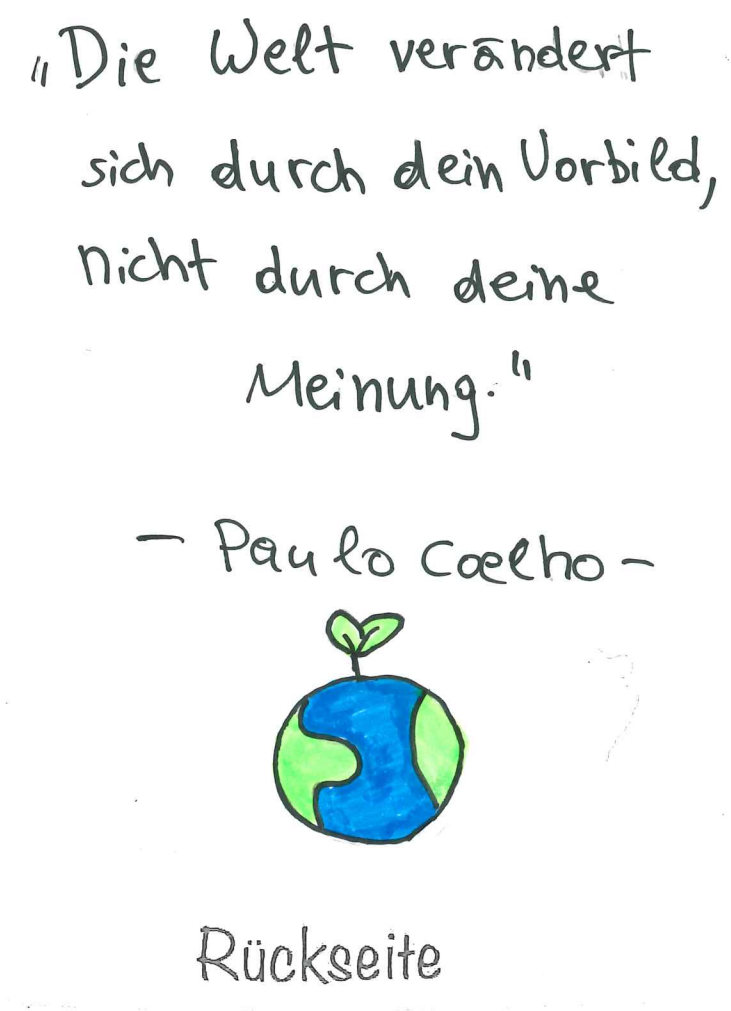 „Die Welt verändert
sich durch dein Vorbild,
nicht durch deine
Meinung."
- Paulo Coelho -
Rückseite